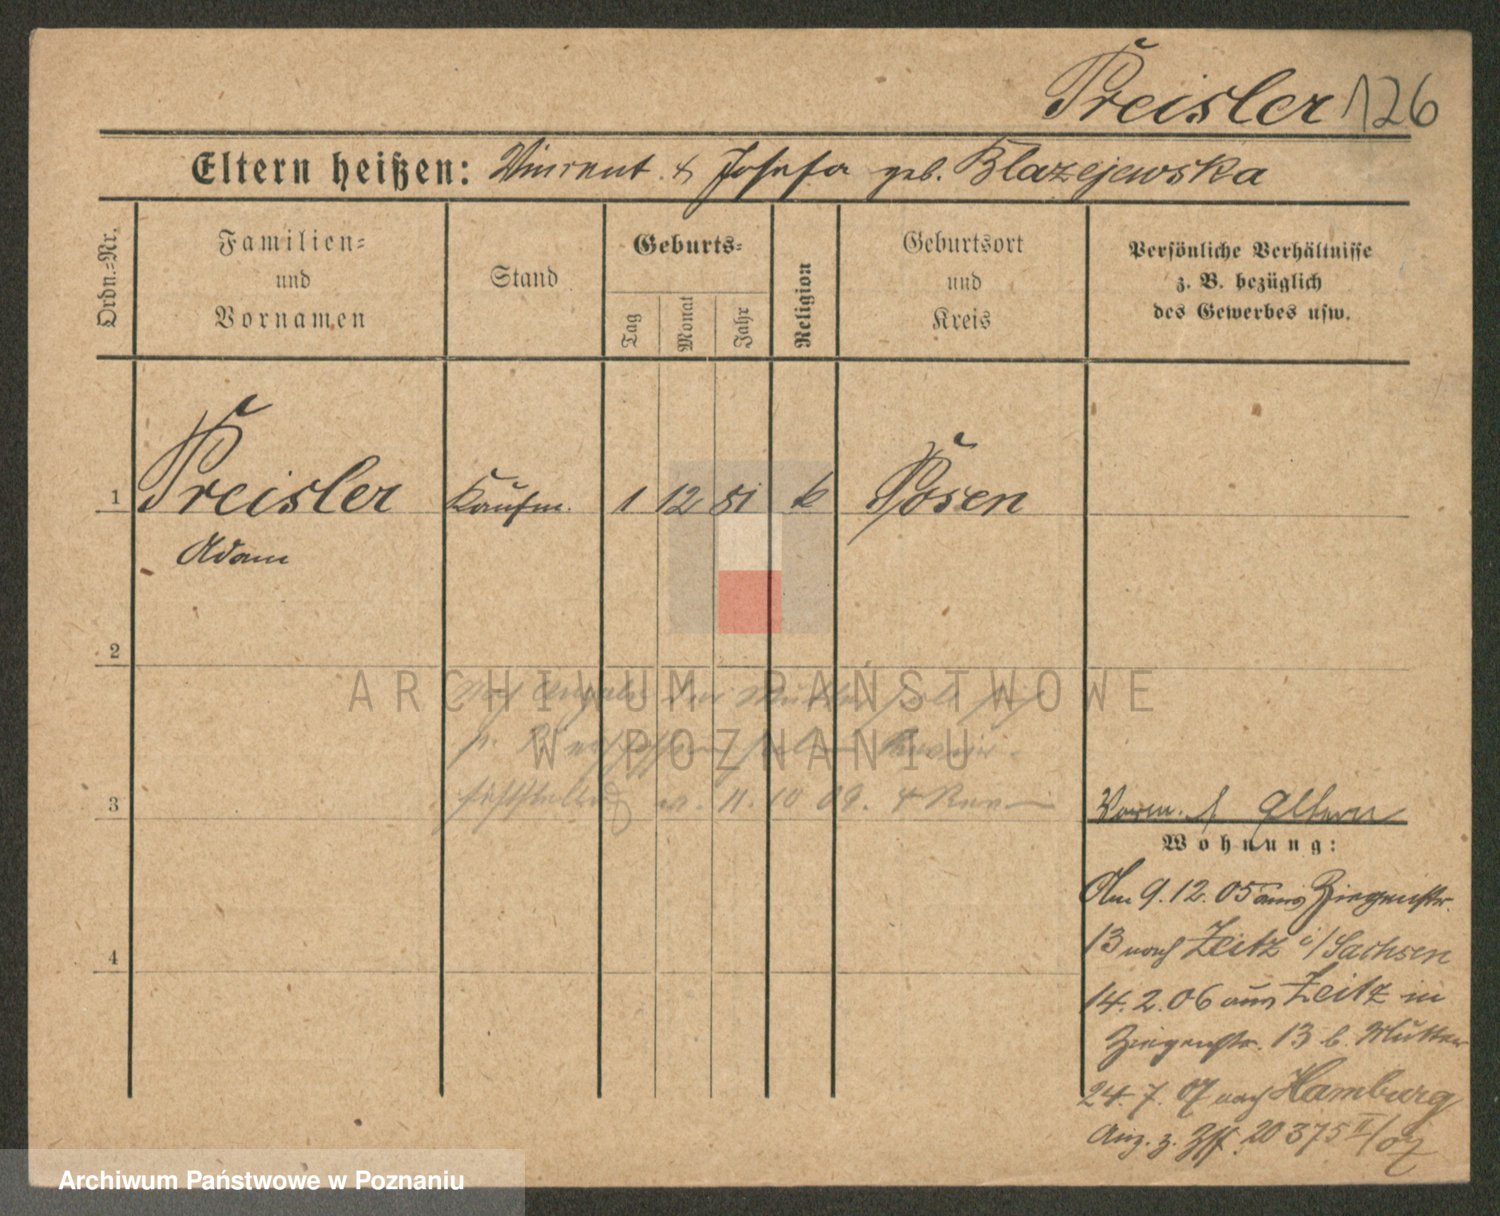 Preisler 126
Eltern heißen: Vincent & Josefa geb. Blazejewska
Ordn.-Nr.
Familien-
und
Vornamen
Stand
Geburts-
Tag
Monat
Jahr
Religion
Geburtsort
und
Kreis
Persönliche Verhältnisse
z. B. bezüglich
des Gewerbes usw.
1 Preisler Kaufm. 1 12 81 k Posen
Adam
2
ARCHIWUM PAŃSTWOWE
W POZNANIU
Nach Angabe der Mutter soll sich
11. 10 09.
3
Vorm. s Eltern
Wohnung:
Am 9. 12. 05 aus Ziegenstr.
13 nach Zeitz i/Sachsen
4
14. 2. 06 aus Zeitz in
Ziegenstr. 13 b. Mutter
24. 7. 07 nach Hamburg
Anz. z. 20 375 II/07
Archiwum Państwowe w Poznaniu